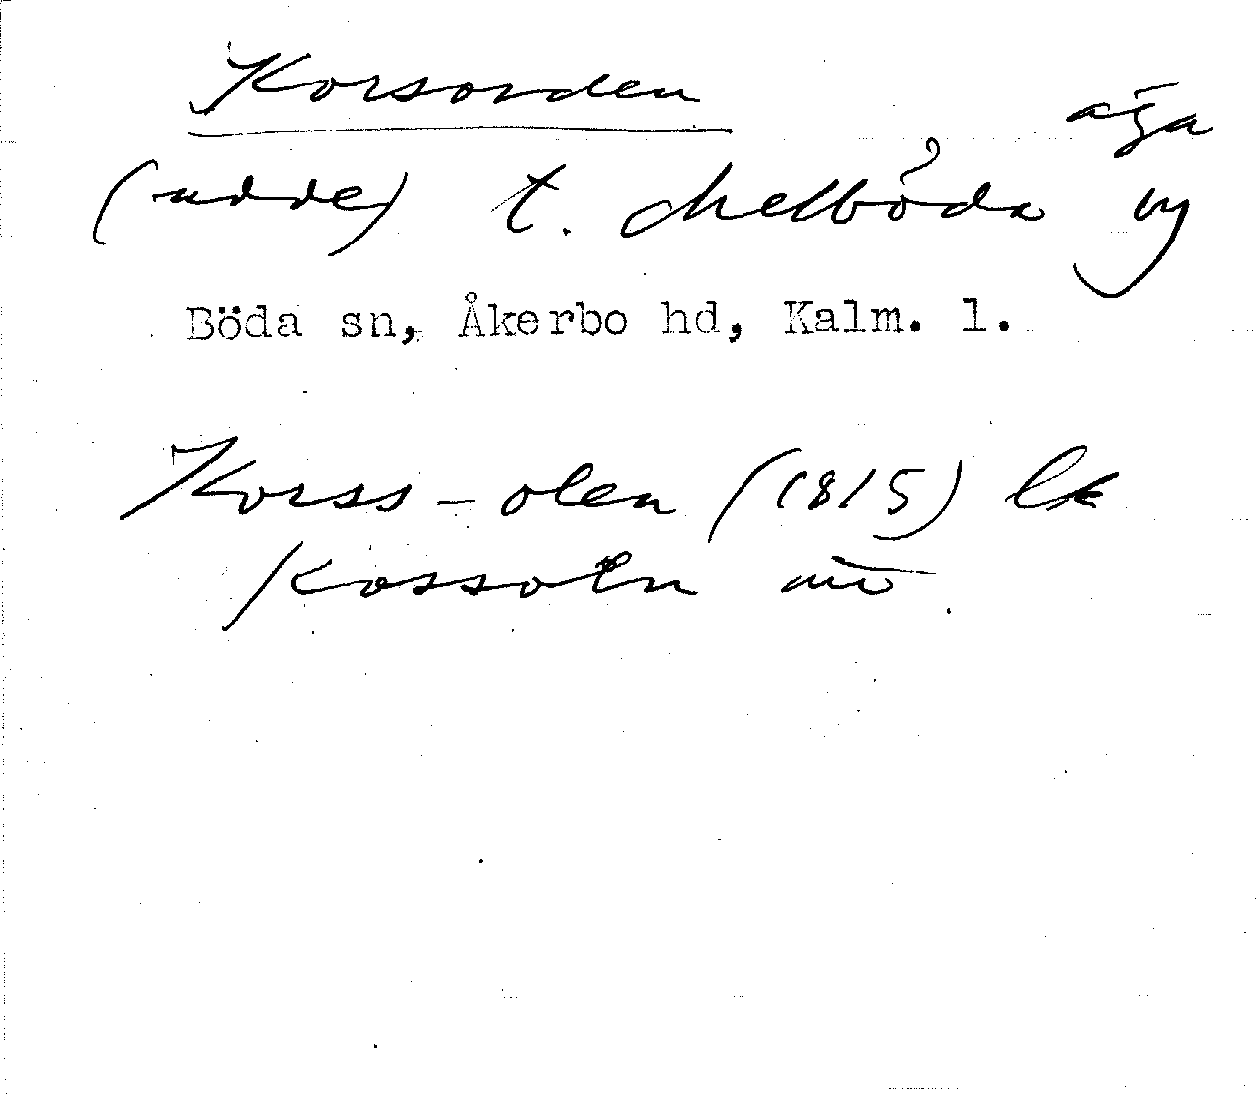 Korsorden
äga
(udde) t. Melböda by
Böda sn, Åkerbo hd, Kalm. l.
Korss-olen (1815) lk
Kossoln